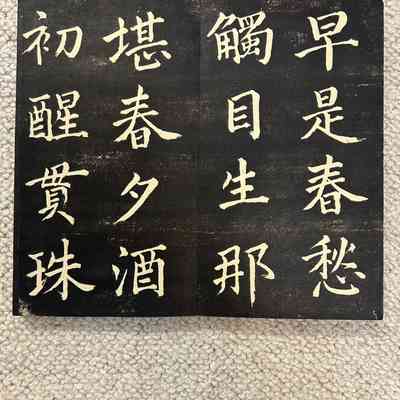 早是春愁
觸目生那
堪春夕酒
初醒貫珠